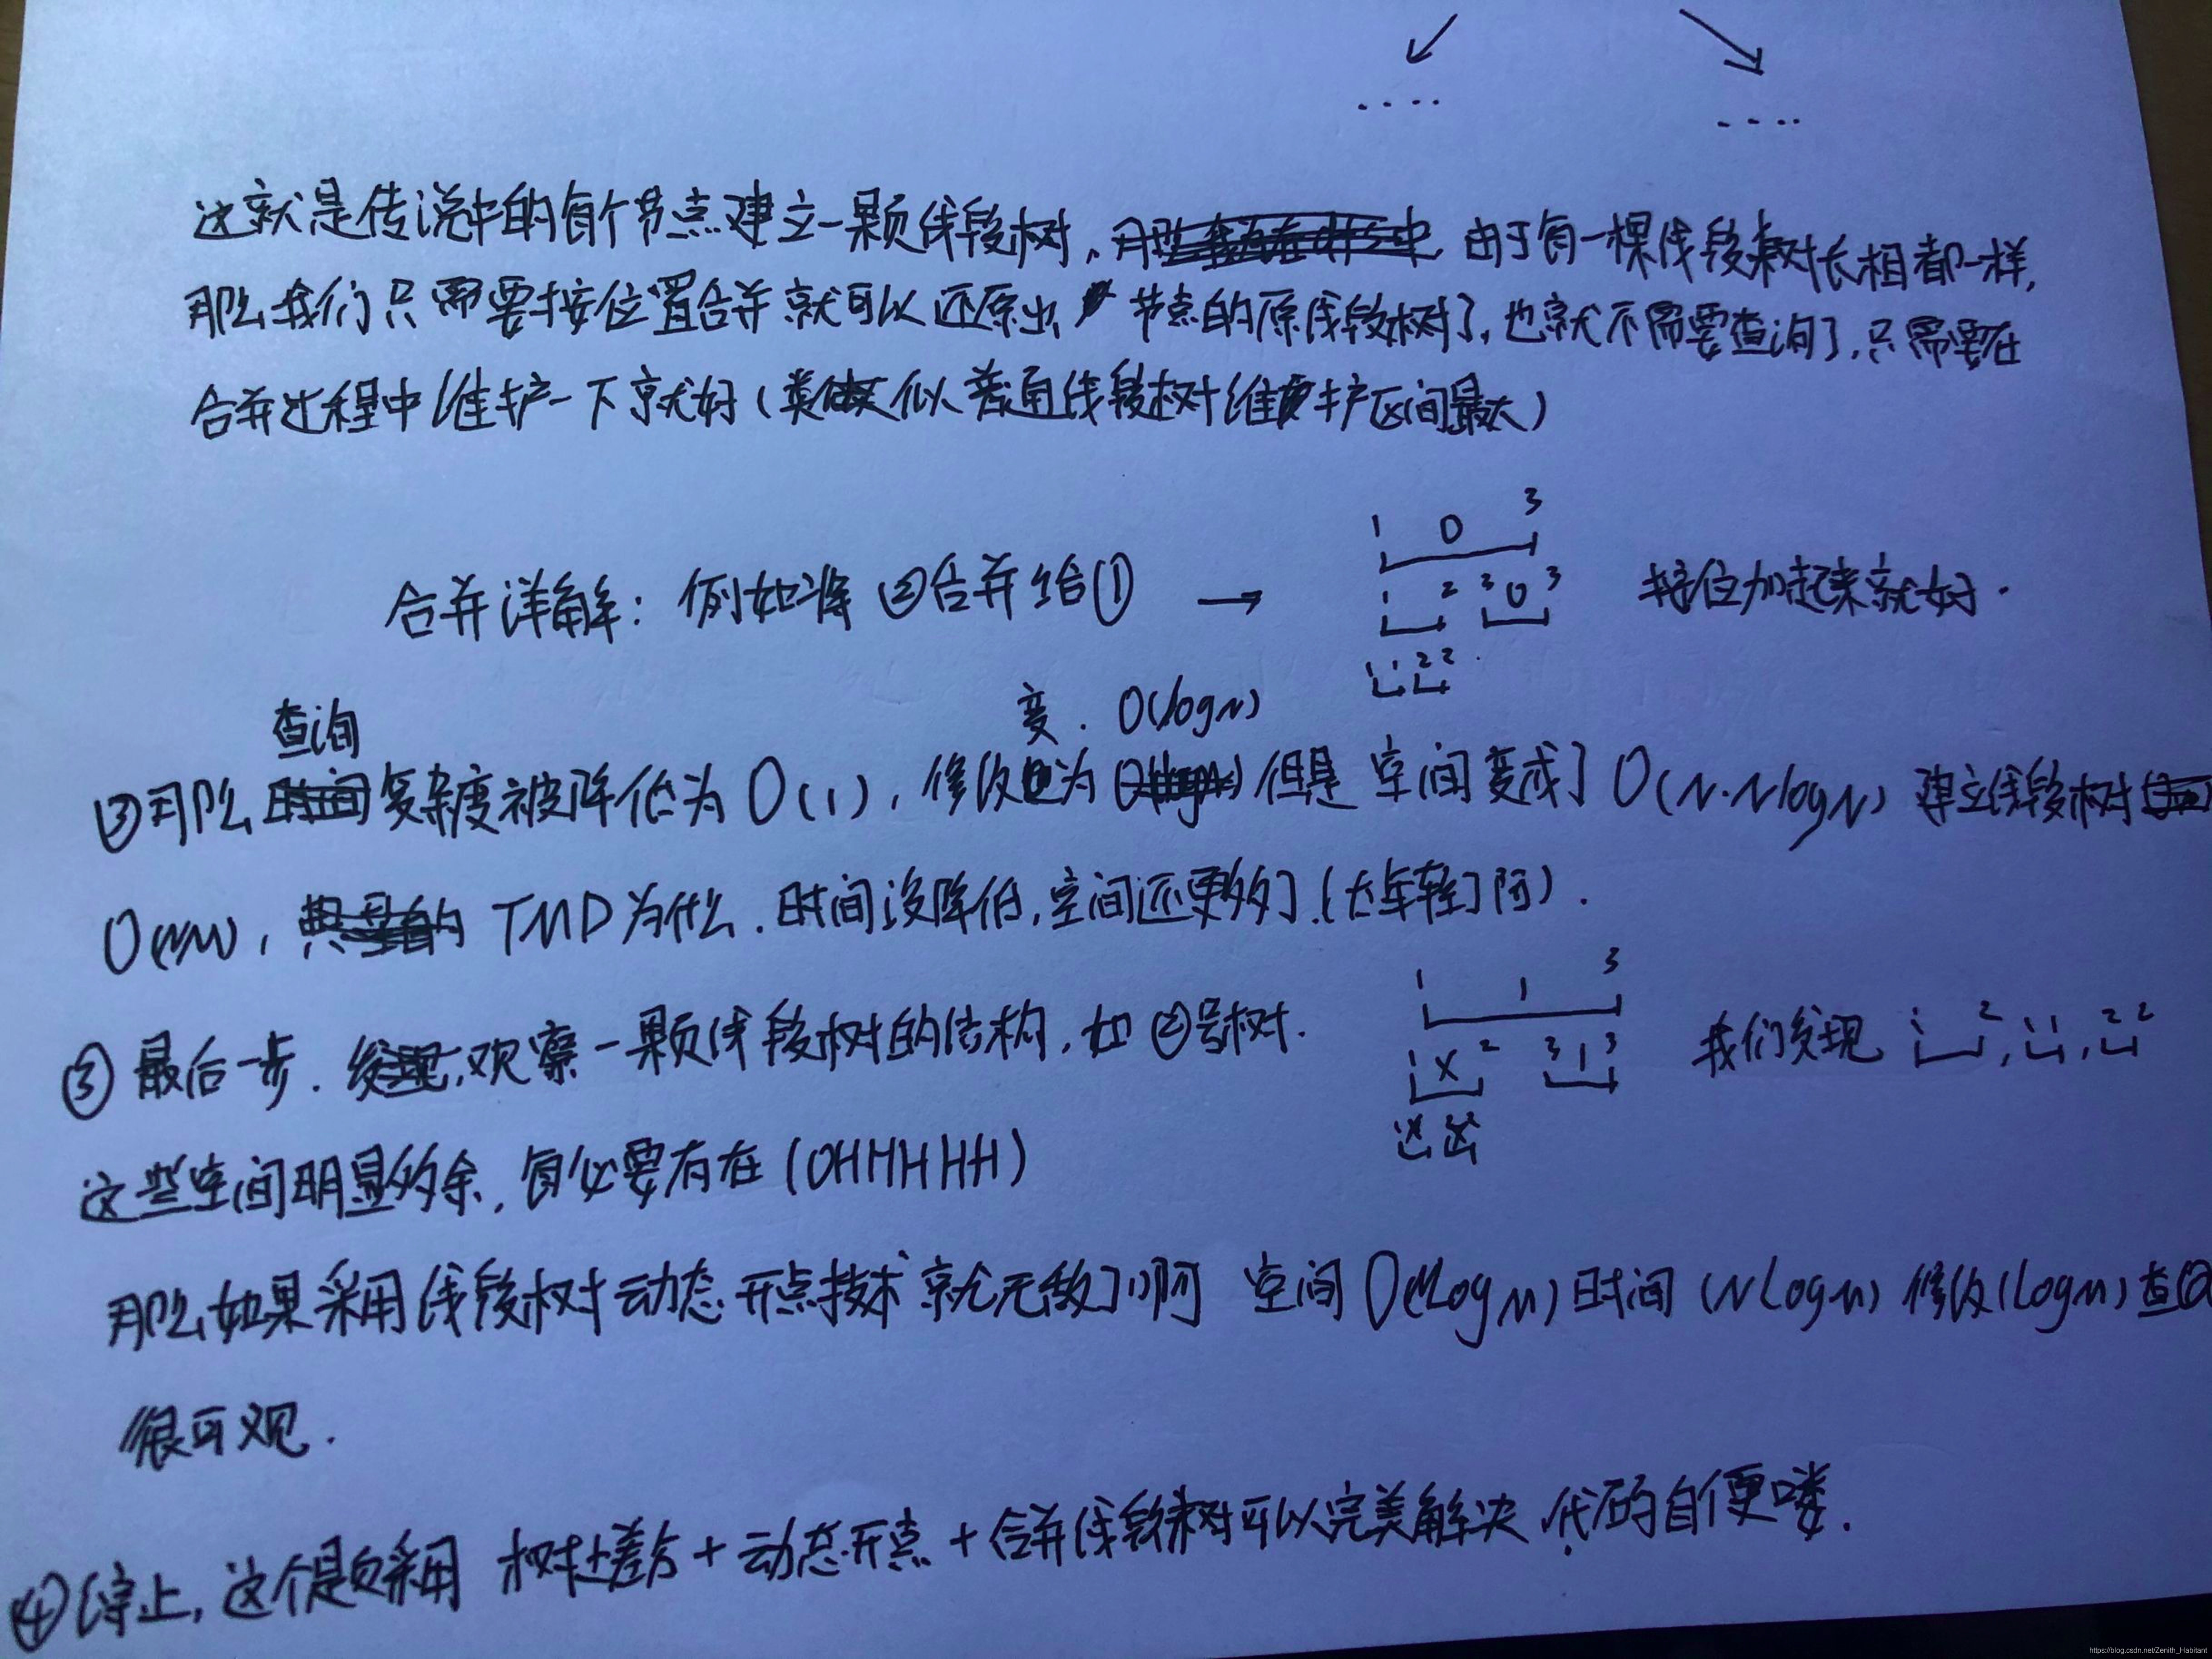 这就是传说中的每个节点建立一颗线段树、由于每一棵线段树长相都一样,
那么我们只需要按位置合并就可以还原出 节点的原线段树了,也就不需要查询了,只需要在
合并过程中维护一下就好(类似普通线段树维护区间最大)
1 0 3
合并详解: 例如将②合并给① → 1 2 3 0 3 按位加起来就好.
1 1 2 2
查询 变. O(logN)
③那么复杂度被降低为O(1), 修改为 但是 空间变成了O(N·NlogN) 建立线段树
TMD为什么.时间没降低,空间还更多了.(太年轻了阿).
1 1 3
③ 最后一步. 观察一颗线段树的结构, 如②号树. 1 X 2 3 1 3 我们发现 1 2, 1 1, 2 2
这些空间明显多余, 有必要存在(OHHHHH)
那么如果采用线段树动态开点技术就无敌了啊 空间O(NlogN) 时间(NlogN) 修改(logN)
很可观.
④停止, 这个题采用 树上差分+动态开点+合并线段树可以完美解决.代码自便喽.
https://blog.csdn.net/Zenith_Habitant